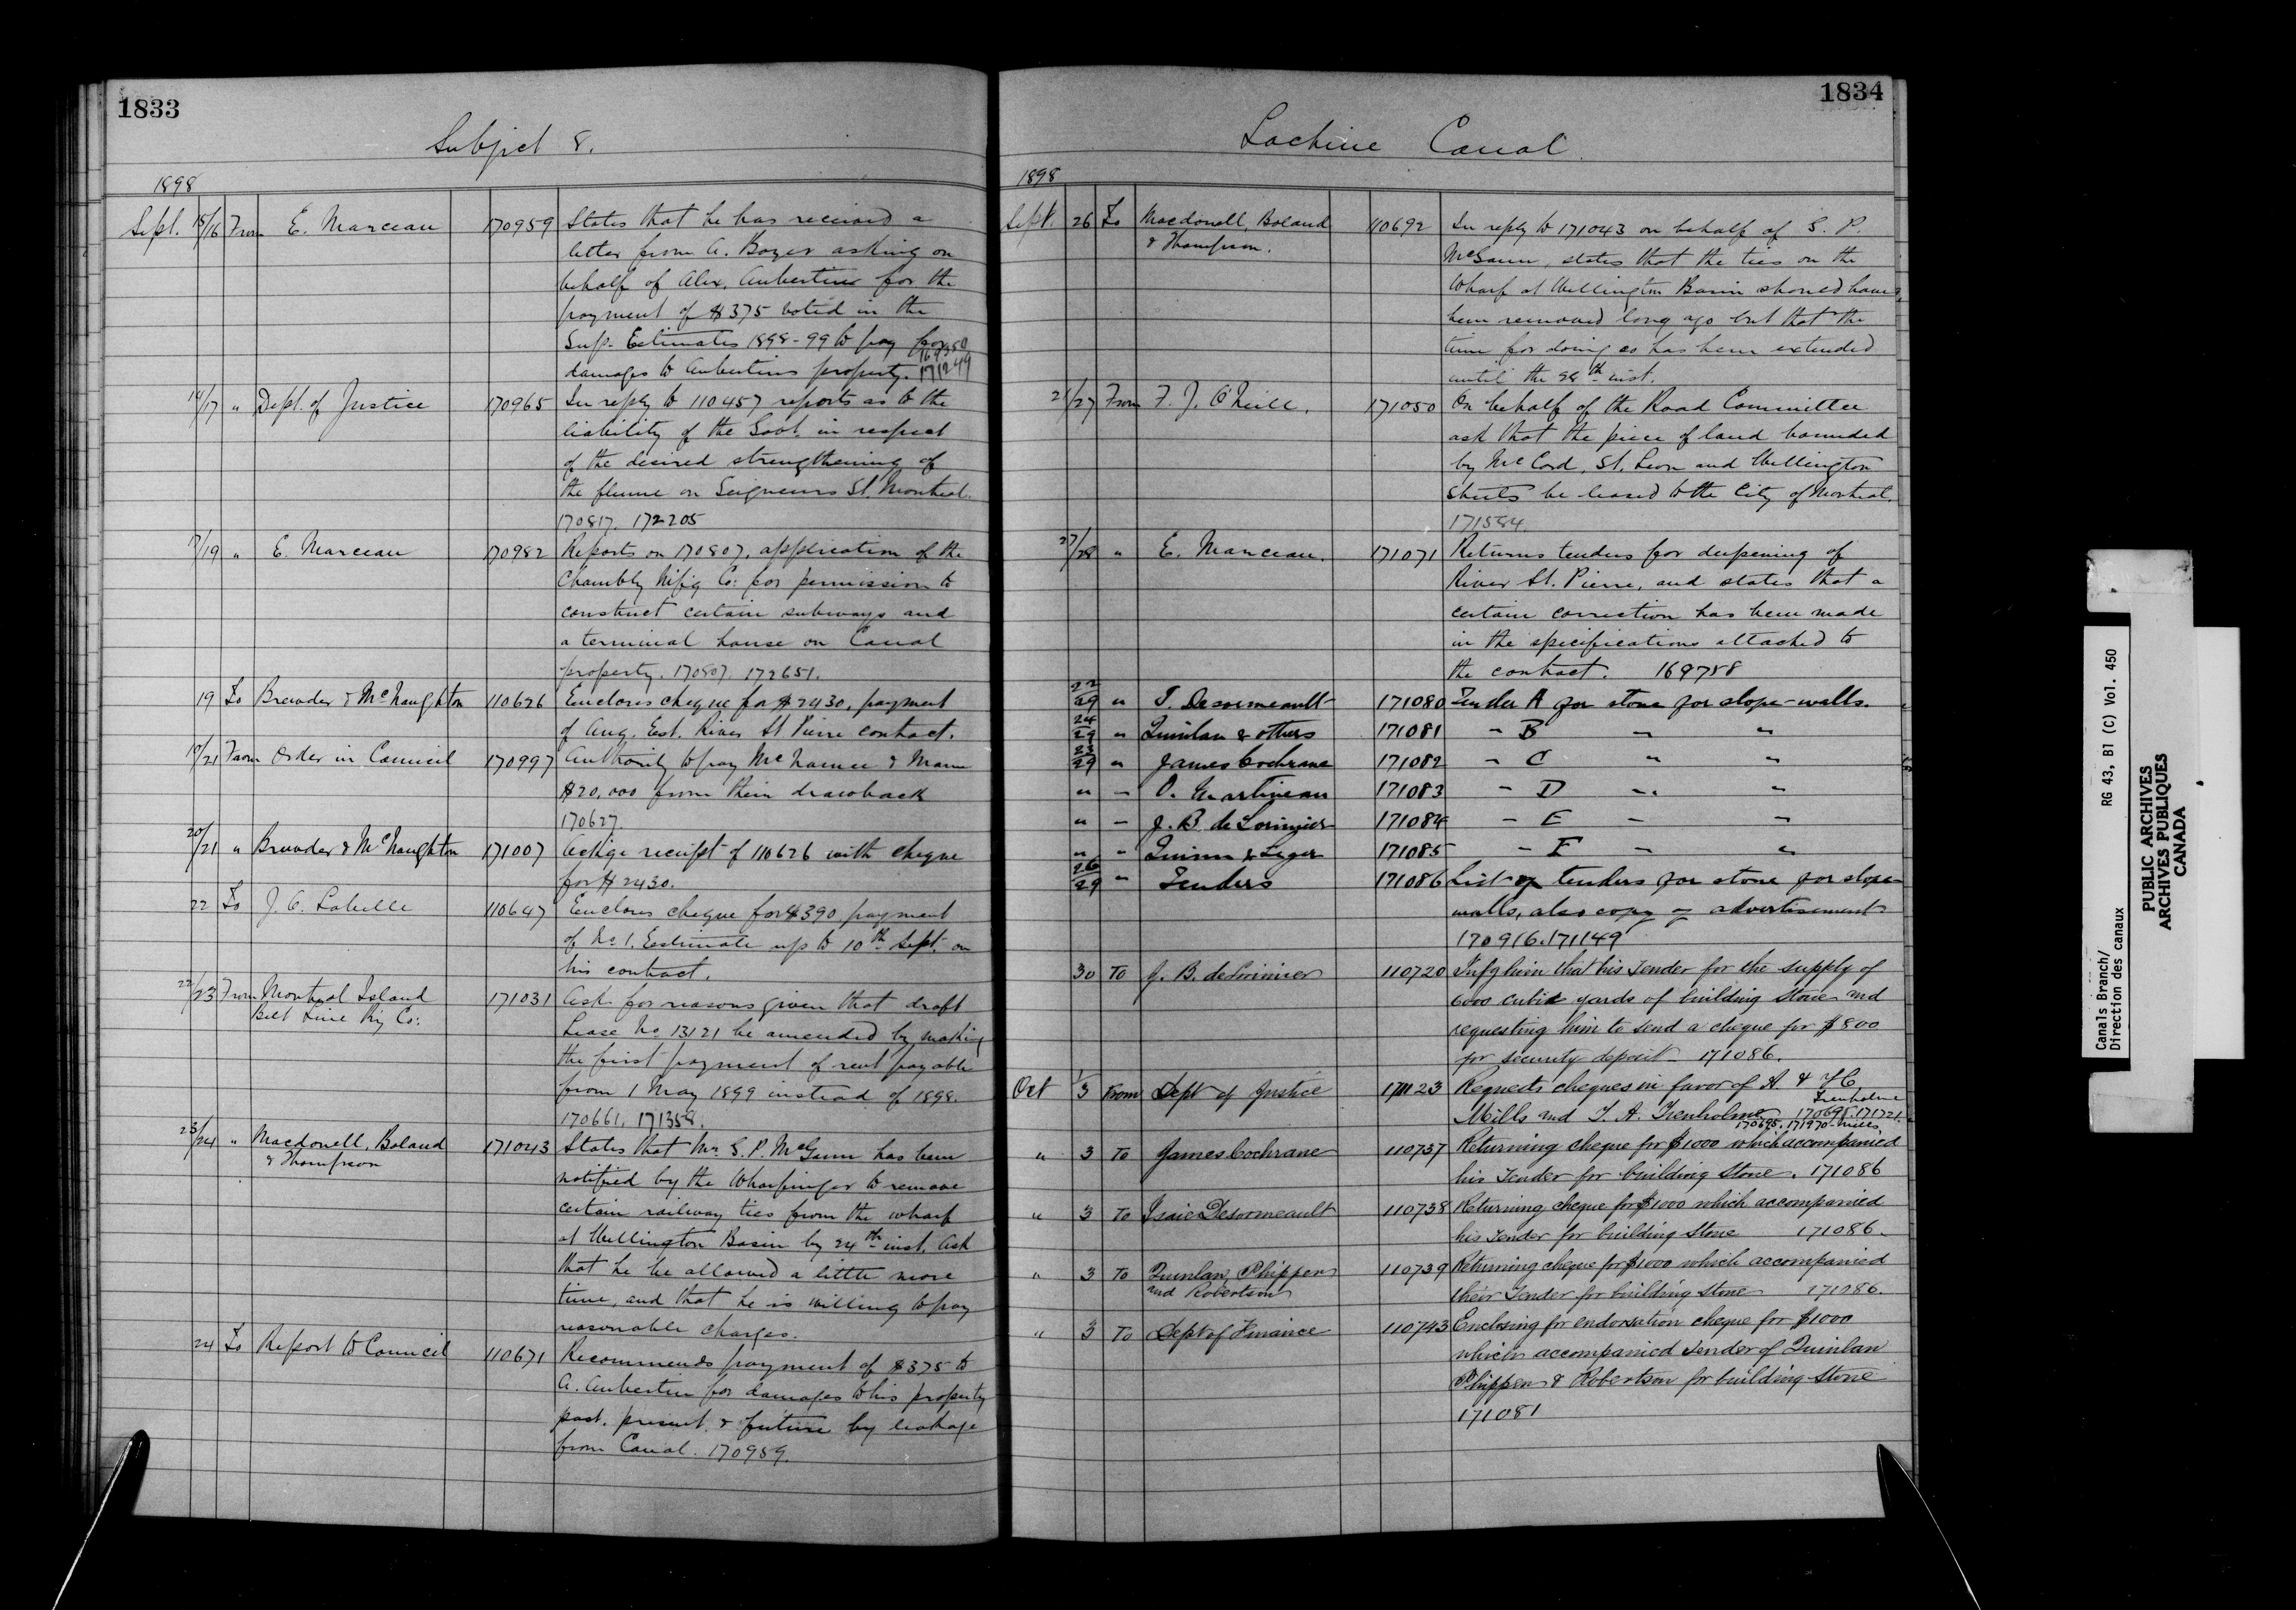 1833
Subject 8.
1898
Sept. 15/16 From E. Marceau 170959 States that he has received a
letter from A. Boyer asking on
behalf of Alex. Aubertin for the
payment of $375 voted in the
Sup. Estimates 1898-99 to pay for
damages to Aubertins property. 169350 171249
16/17 " Dept. of Justice 170965 In reply to 110457 reports as to the
liability of the Govt. in respect
of the desired strengthening of
the flume on Seigneurs St. Montreal.
170817. 172205
17/19 " E. Marceau 170982 Reports on 170807, application of the
Chambly Mfg Co: for permission to
construct certain subways and
a terminal house on Canal
property. 170807. 172651.
19 To Brewder & McNaughton 110626 Encloses cheque for $2430, payment
of Aug. Est. River St Pierre contract.
19/21 From Order in Council 170997 Authority to pay McNamee & Mann
$20,000 from their drawback
170627.
20/21 " Brewder & McNaughton 171007 Ackge receipt of 110626 with cheque
for $2430.
22 To J. C. Labelle 110647 Encloses cheque for $390 payment
of No 1. Estimate up to 10th Sept. on
his contract.
22/23 From Montreal Island
Belt Line Ry Co: 171031 Ask for reasons given that draft
Lease No. 13121 be amended by making
the first payment of rent payable
from 1 May 1899 instead of 1898.
170661. 171358.
23/24 " Macdonell, Boland
& Thompson 171043 States that Mr. S. P. McGann has been
notified by the Wharfinger to remove
certain railway ties from the wharf
at Wellington Basin by 24th inst. Ask
that he be allowed a little more
time, and that he is willing to pay
reasonable charges.
24 To Report to Council 110671 Recommends payment of $375 to
A. Aubertin for damages to his property
past, present, & future by leakage
from Canal. 170959.
1834
Lachine Canal.
1898
Sept. 26 To Macdonell, Boland
& Thompson. 110692 In reply to 171043 on behalf of S. P.
McGann, states that the ties on the
Wharf at Wellington Basin should have
been removed long ago but that the
time for doing so has been extended
until the 28th inst.
21/27 From F. J. O'Neill. 171050 On behalf of the Road Committee
ask that the piece of land bounded
by McCord, St. Leon and Wellington
Streets be leased to the City of Montreal.
171584.
27/28 " E. Marceau. 171071 Returns tenders for deepening of
River St. Pierre, and states that a
certain correction has been made
in the specifications attached to
the contract. 169758
22/29 " I. Desormeault 171080 Tender A for stone for slope-walls.
24/29 " Quinlan & others 171081 " B " "
23/29 " James Cochrane 171082 " C " "
" " O. Martineau 171083 " D " "
" " J. B. de Lorimier 171084 " E " "
" " Quinn & Leger 171085 " F " "
26/29 " Tenders 171086 List of tenders for stone for slope
walls, also copy of advertisement
170916. 171149
30 To J. B. deLorimier 110720 Infg him that his tender for the supply of
6000 cubic yards of building Stone and
requesting him to send a cheque for $800
for security deposit. 171086.
Oct 1/3 From Dept of Justice 171123 Requests cheques in favor of A & J C
Mills and T. A. Trenholme Trenholme 170695. 171721.
170695. 171970 - Mills
" 3 To James Cochrane 110737 Returning cheque for $1000 which accompanied
his Tender for building Stone. 171086
" 3 To Isaie Desormeault 110738 Returning cheque for $1000 which accompanied
his Tender for building Stone 171086.
" 3 To Quinlan, Phippen
and Robertson 110739 Returning cheque for $1000 which accompanied
their Tender for building Stone 171086.
" 3 To Dept of Finance 110743 Enclosing for endorsation cheque for $1000
which accompanied tender of Quinlan
Phippen & Robertson for building Stone
171081
Canals Branch/ RG 43, B1 (C) Vol. 450
Direction des canaux
PUBLIC ARCHIVES
ARCHIVES PUBLIQUES
CANADA